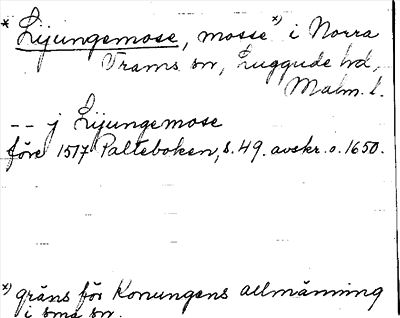 * Lijungemose, mosse x) i Norra
Trams sn, Luggude hd,
Malm. l.
-- j Lijungemose
före 1517 Palteboken, s. 49. avskr. o. 1650.
x) gräns för Konungens allmänning
i sma sn.